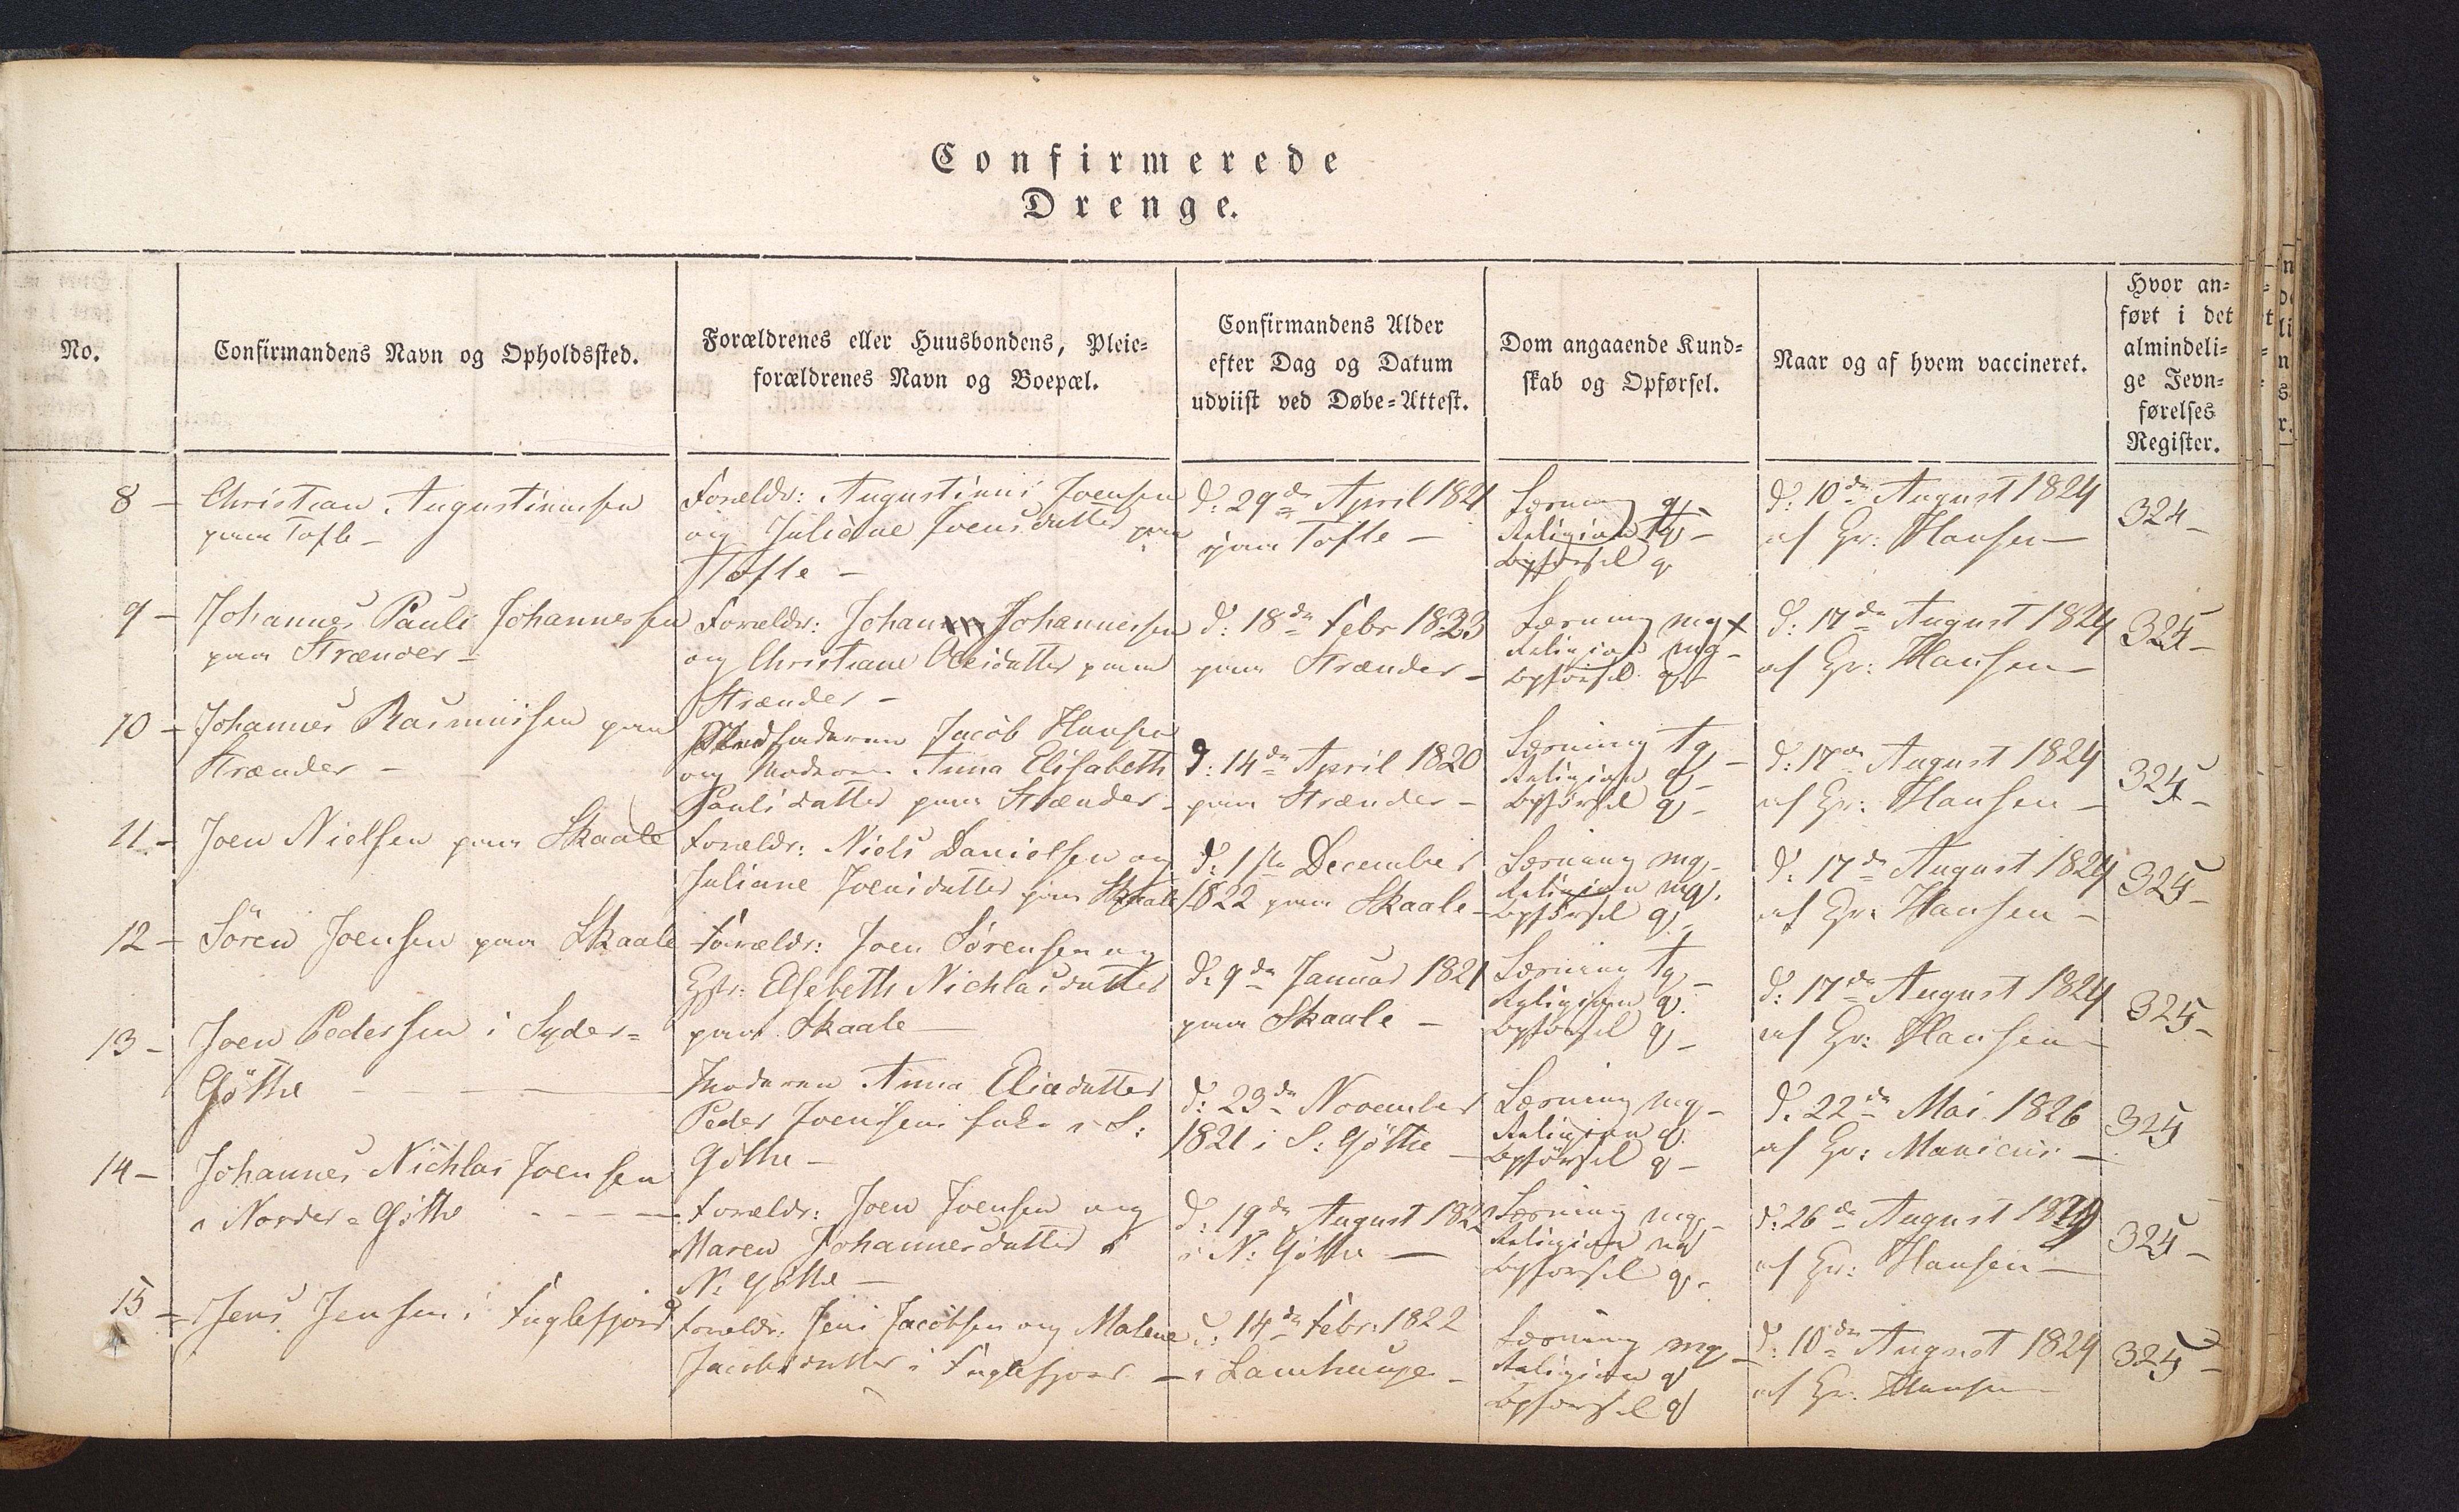 Confirmerede
Drenge.
No.
Confirmandens Navn og Opholdssted.
Forældrenes eller Huusbondens, Pleie=
forældrenes Navn og Boepæl.
Confirmandens Alder
efter Dag og Datum
udviist ved Døbe=Attest.
Dom angaaende Kund=
skab og Opførsel.
Naar og af hvem vaccineret.
Hvor an=
ført i det
almindeli=
ge Jevn=
førelses
Register.
8 -
Christian Augustinusen
paa Tofte -
Forældr: Augustinus Joensen
og Juliane Joensdatter paa
Tofte -
d: 29de April 1821
paa Tofte -
Læsning g -
Religion tg -
Opførsel g
d: 10de August 1824
af Hr: Hansen -
324 -
9 -
Johannes Pauli Johannessen
paa Strænder -
Forældr: Johan Johannessen
og Christiane Olesdatter paa
Strænder -
d: 18de Febr 1823
paa Strænder -
Læsning mg x
Religion mg -
Opførsel g -
d: 17de August 1824
af Hr: Hansen -
325 -
10 -
Johannes Rasmussen paa
Strænder -
Stedfaderen Jacob Hansen
og Moderen Anna Elisabeth
Poulsdatter paa Strænder -
d: 14de April 1820
paa Strænder -
Læsning tg -
Religion g -
Opførsel g -
d: 17de August 1824
af Hr: Hansen -
325 -
11 -
Joen Nielsen paa Skaale
Forældr: Niels Danielsen og
Juliane Joensdatter paa Skaale
d: 1ste December
1822 paa Skaale -
Læsning mg -
Religion mg.
Opførsel g -
d: 17de August 1824
af Hr: Hansen -
325 -
12 -
Sören Joensen paa Skaale
Forældr: Joen Sörensen og
Elsebeth Nichlasdatter
paa Skaale -
d: 9de Januar 1821
paa Skaale -
Læsning tg -
Religion g.
Opførsel g -
d: 17de August 1824
af Hr: Hansen -
325 -
13 -
Joen Pedersen i Syder=
Göthe -
Moderen Anna Eliadatter
Peder Joensens Enke i S:
Göthe -
d: 23de November
1821 i S: Göthe -
Læsning mg -
Religion g.
Opførsel g -
d: 22de Mai 1826
af Hr: Manicus -
325
14 -
Johannes Nichlas Joensen
i Norder=Göthe - - -
Forældr: Joen Joensen og
Maren Johannesdatter i
N: Göthe -
d: 19de August 1822
i N: Göthe -
Læsning mg -
Religion mg
Opførsel g -
d: 26de August
af Hr: Hansen -
325 -
15 -
Jens Jensen i Fuglefjord
Forældr: Jens Jacobsen og Malene
Jacobsdatter i Fuglefjord -
d: 14de Febr: 1822
i Lamhauge -
Læsning mg -
Religion g
Opførsel g
d: 10de August 1824
af Hr: Hansen -
325 -